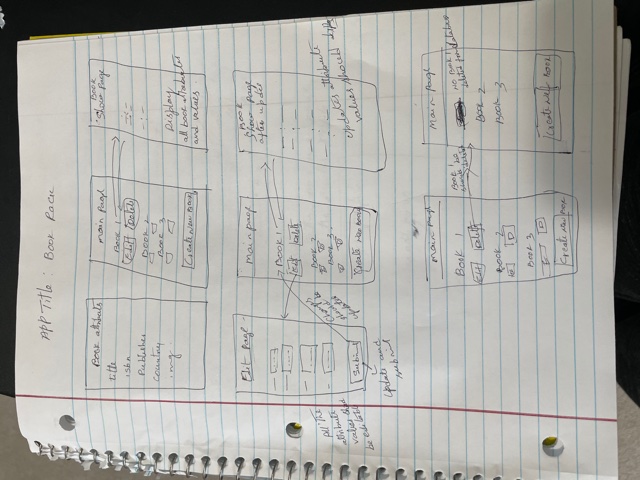 App Title : Book Rack
Book attributes
title
isbn
Publisher
country
img
Main Page
Book 1
Edit Delete
Book 2
Book 3
Create New Book
Book
Show Page
Display
all book attributes
and values
Edit Page
Submit
Update and
submit
All the
attribute
values should
be editable
Changes
should be
updated
Main page
Book 1
Edit Delete
Book 2
Book 3
Create New Book
Book
Show Page
after update
updates attribute
values should
Main Page
Book 1
Edit Delete
Book 2
E D
Book 3
D
Create New Book
Book 1
deleted
Main Page
NO BOOK 1
deleted from database
Book 2
Book 3
Create New Book